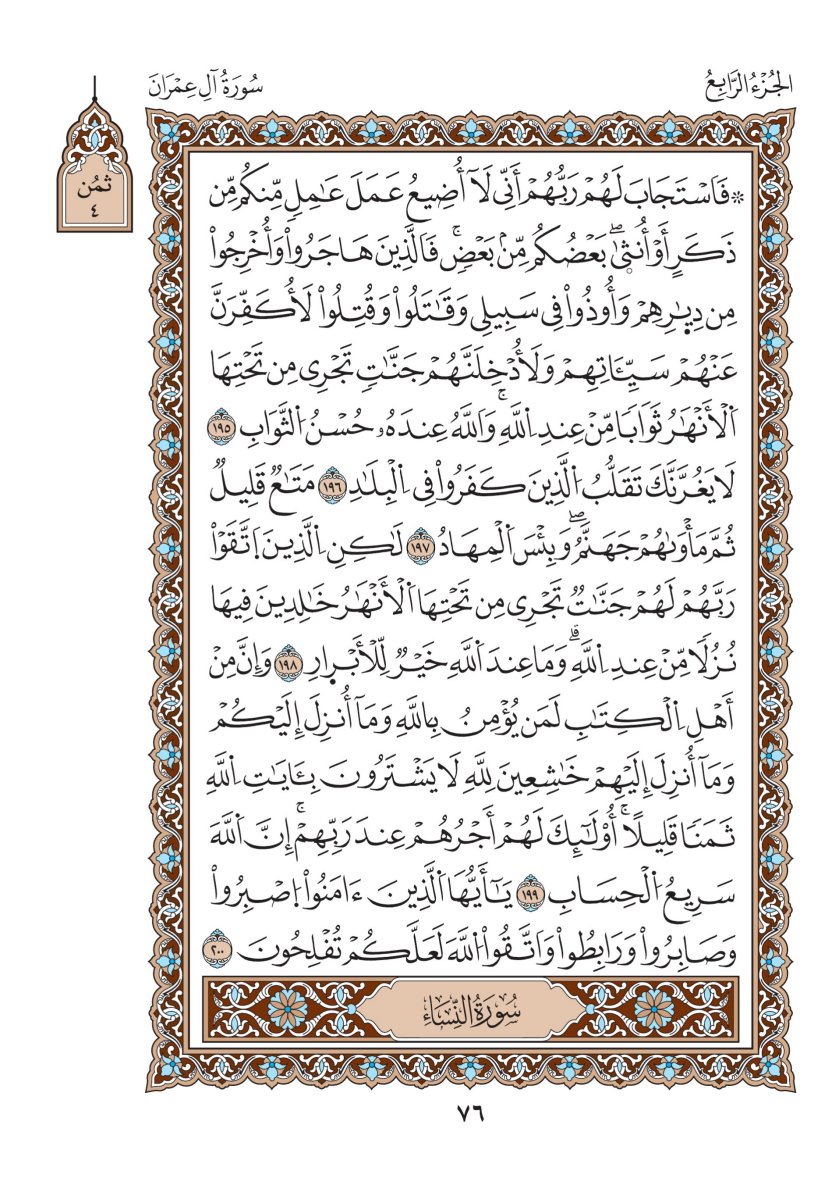 الجُزْءُ الرَّابِعُ
سُورَةُ آلِ عِمْرَانَ
ثمُن
٤
۞ فَاسْتَجَابَ لَهُمْ رَبُّهُمْ أَنِّي لَآ أُضِيعُ عَمَلَ عَٰمِلٖ مِّنكُم مِّن
ذَكَرٍ أَوْ أُنث۪ىٰۖ بَعْضُكُم مِّنۢ بَعْضٖۚ فَالَّذِينَ هَاجَرُواْ وَأُخْرِجُواْ
مِن دِيٰ۪رِهِمْ وَأُوذُواْ فِي سَبِيلِي وَقَٰتَلُواْ وَقُتِلُواْ لَأُكَفِّرَنَّ
عَنْهُمْ سَيِّـَٔاتِهِمْ وَلَأُدْخِلَنَّهُمْ جَنَّٰتٖ تَجْرِي مِن تَحْتِهَا
اَ۬لْأَنْهَٰرُ ثَوَابٗا مِّنْ عِندِ اِ۬للَّهِۚ وَاللَّهُ عِندَهُۥ حُسْنُ اُ۬لثَّوَابِ ١٩٥
لَا يَغُرَّنَّكَ تَقَلُّبُ اُ۬لَّذِينَ كَفَرُواْ فِي اِ۬لْبِلَٰدِ ١٩٦ مَتَٰعٞ قَلِيلٞ
ثُمَّ مَأْوَىٰهُمْ جَهَنَّمُۖ وَبِئْسَ اَ۬لْمِهَادُ ١٩٧ لَٰكِنِ اِ۬لَّذِينَ اَ۪تَّقَوْاْ
رَبَّهُمْ لَهُمْ جَنَّٰتٞ تَجْرِي مِن تَحْتِهَا اَ۬لْأَنْهَٰرُ خَٰلِدِينَ فِيهَا
نُزُلٗا مِّنْ عِندِ اِ۬للَّهِۗ وَمَا عِندَ اَ۬للَّهِ خَيْرٞ لِّلْأَبْر۪ارِ ١٩٨ وَإِنَّ مِنْ
أَهْلِ اِ۬لْكِتَٰبِ لَمَن يُؤْمِنُ بِاللَّهِ وَمَآ أُنزِلَ إِلَيْكُمْ
وَمَآ أُنزِلَ إِلَيْهِمْ خَٰشِعِينَ لِلَّهِ لَا يَشْتَرُونَ بِـَٔايَٰتِ اِ۬للَّهِ
ثَمَنٗا قَلِيلًاۚ أُوْلَٰٓئِكَ لَهُمْ أَجْرُهُمْ عِندَ رَبِّهِمْۚ إِنَّ اَ۬للَّهَ
سَرِيعُ اُ۬لْحِسَابِ ١٩٩ يَٰٓأَيُّهَا اَ۬لَّذِينَ ءَامَنُواْ اُ۪صْبِرُواْ
وَصَابِرُواْ وَرَابِطُواْ وَاتَّقُواْ اُ۬للَّهَ لَعَلَّكُمْ تُفْلِحُونَ ٢٠٠
سُورَةُ النِّسَاءِ
٧٦